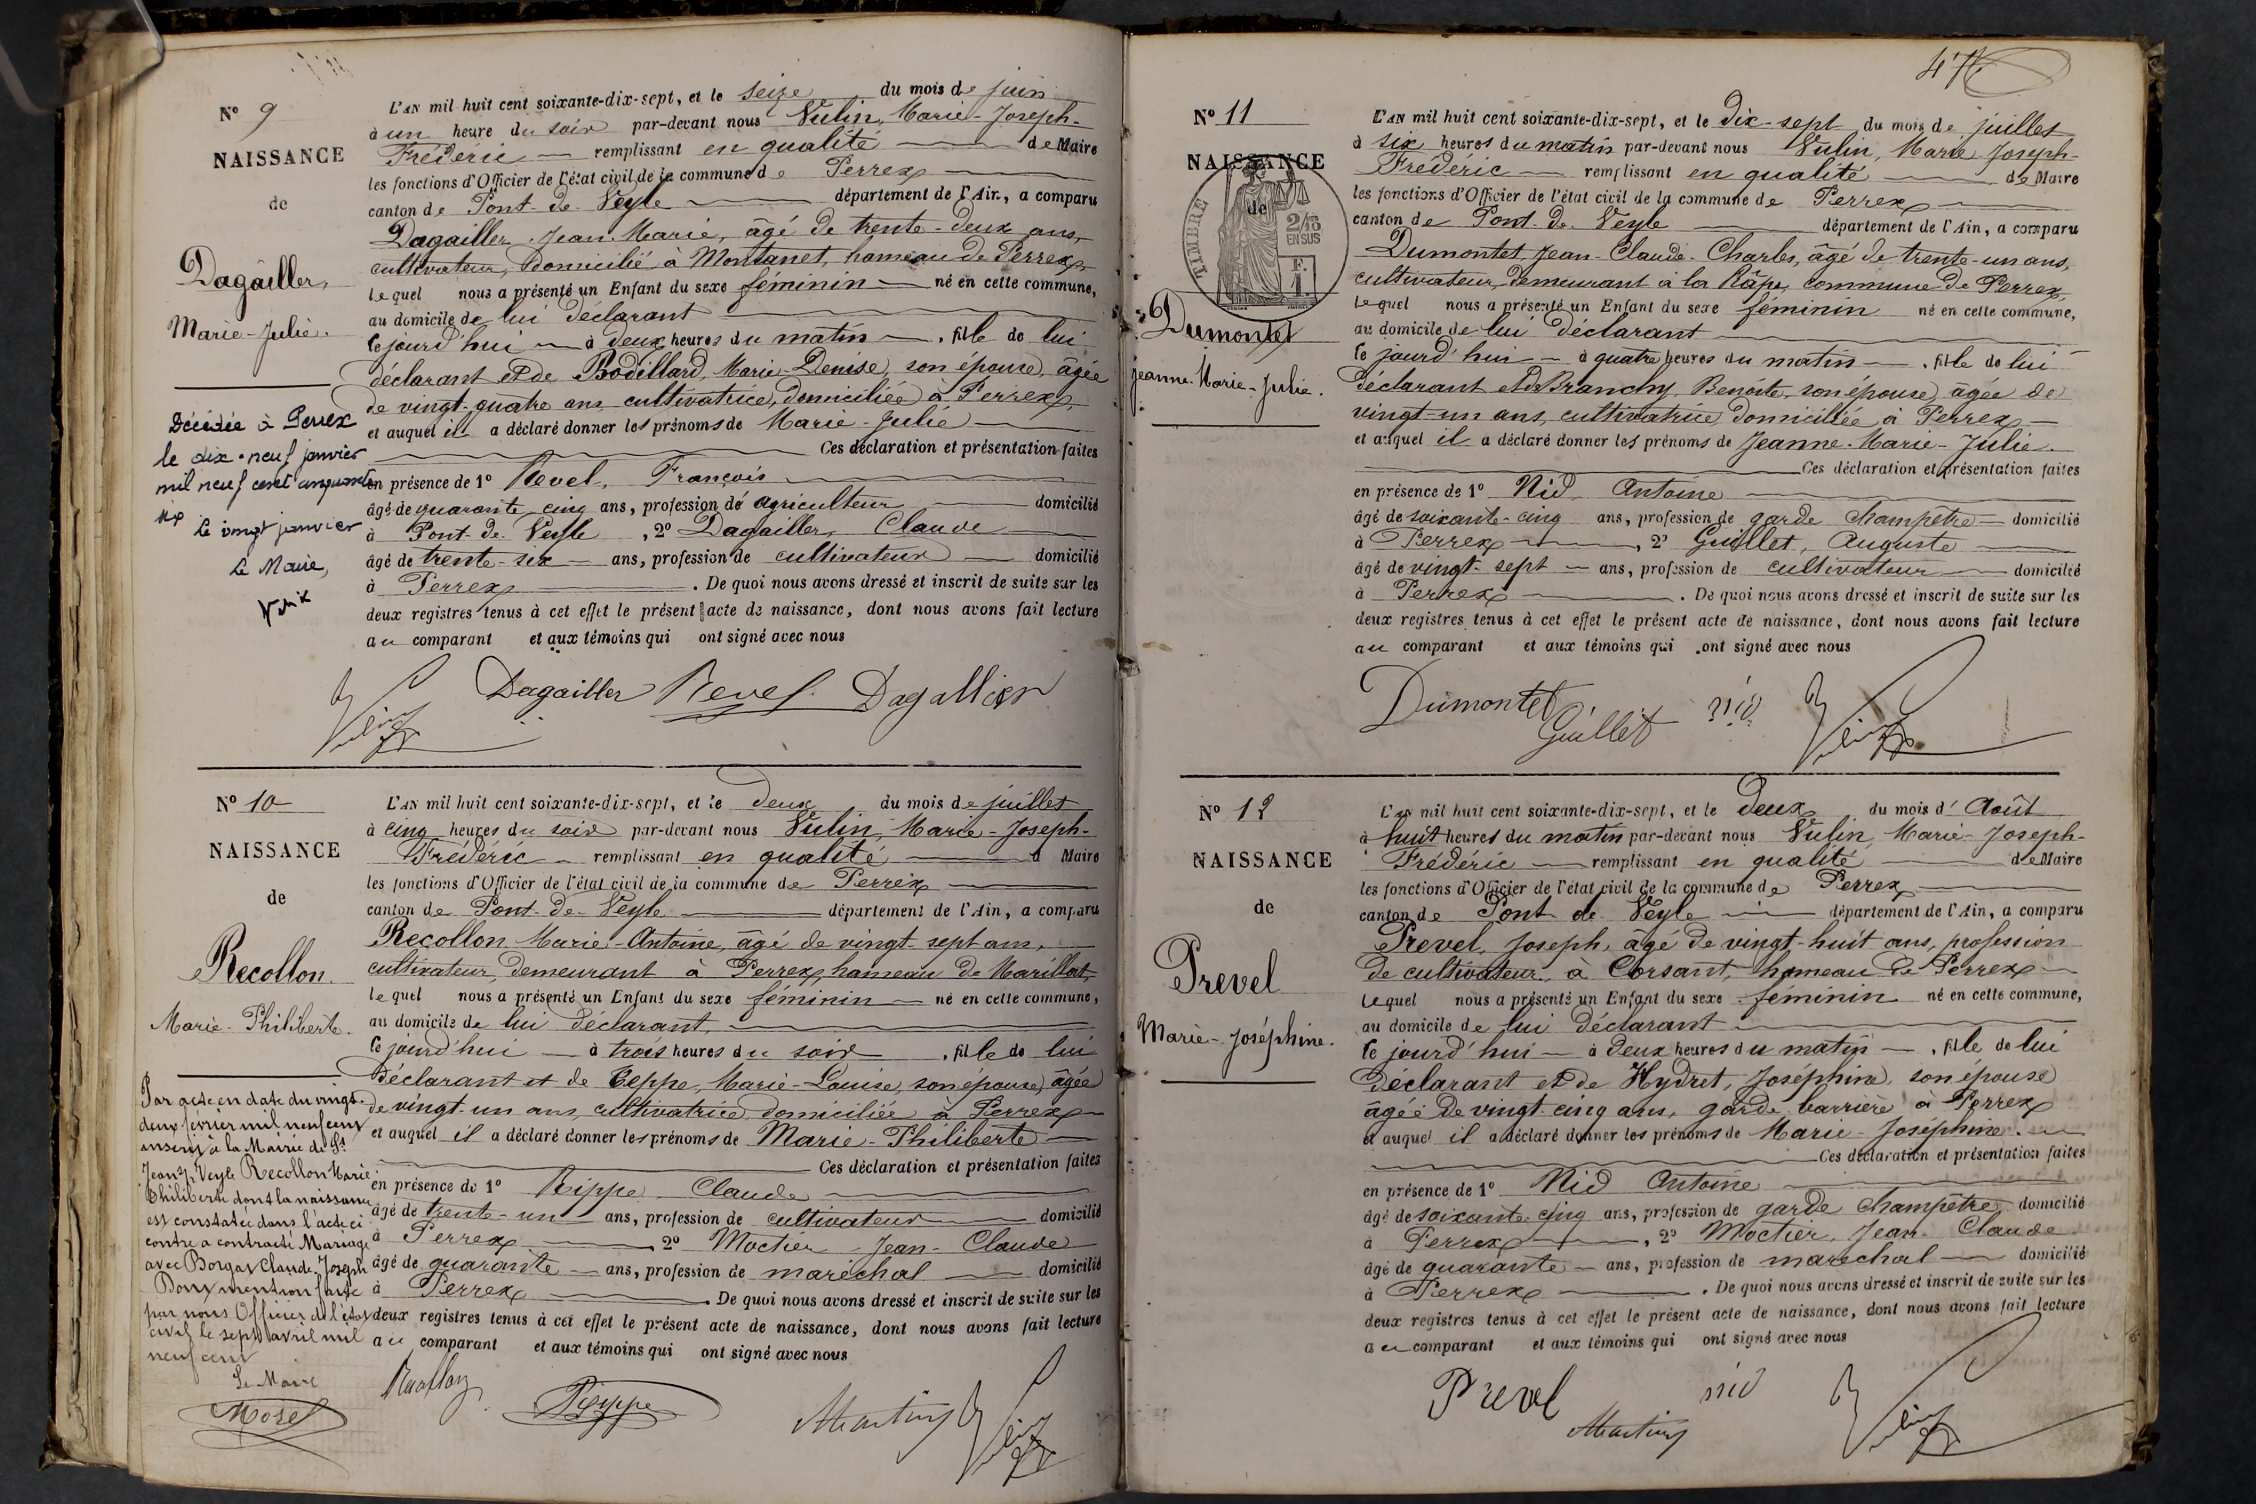 N° 9
NAISSANCE
de
Dagailler,
Marie-Julie.
Décédée à Perrex
le dix-neuf janvier
mil neuf cent cinquante
Le vingt janvier
Le Maire,
L'AN mil huit cent soixante-dix-sept, et le seize du mois de juin
à un heure du soir par-devant nous Vulin, Marie-Joseph-
Frédéric remplissant en qualité de Maire
les fonctions d'Officier de l'état civil de la commune de Perrex
canton de Pont-de-Veyle département de l'Ain, a comparu
Dagailler Jean-Marie, âgé de trente-deux ans,
cultivateur, domicilié à Montanet, hameau de Perrex,
lequel nous a présenté un Enfant du sexe féminin né en cette commune,
au domicile de lui déclarant
ce jourd'hui à deux heures du matin, fille de lui
déclarant et de Bodillard, Marie-Denise, son épouse, âgée
de vingt-quatre ans cultivatrice, domiciliée à Perrex,
et auquel il a déclaré donner les prénoms de Marie-Julie
Ces déclaration et présentation faites
en présence de 1° Revel, François
âgé de quarante cinq ans, profession de agriculteur domicilié
à Pont-de-Veyle, 2° Dagailler, Claude
âgé de trente-six ans, profession de cultivateur domicilié
à Perrex. De quoi nous avons dressé et inscrit de suite sur les
deux registres tenus à cet effet le présent acte de naissance, dont nous avons fait lecture
au comparant et aux témoins qui ont signé avec nous
Dagailler Revel Dagallier
Vulin
N° 10
NAISSANCE
de
Recollon.
Marie-Philiberte.
Par acte en date du vingt-
deux février mil neuf cent
inscrit à la Mairie de St
Jean s/ Veyle Recollon Marie
Philiberte dont la naissance
est constatée dans l'acte ci
contre a contracté Mariage
avec Borgat Claude-Joseph
Dont mention faite
par nous Officier de l'état
civil le sept avril mil
neuf cent
Le Maire
Morel
L'AN mil huit cent soixante-dix-sept, et le deux du mois de juillet
à cinq heures du soir par-devant nous Vulin, Marie-Joseph-
Frédéric remplissant en qualité d Maire
les fonctions d'Officier de l'état civil de la commune de Perrex
canton de Pont-de-Veyle département de l'Ain, a comparu
Recollon Marie-Antoine, âgé de vingt-sept ans,
cultivateur, demeurant à Perrex, hameau de Marillat,
lequel nous a présenté un Enfant du sexe féminin né en cette commune,
au domicile de lui déclarant,
ce jourd'hui à trois heures du soir, fille de lui
déclarant et de Teppe, Marie-Louise, son épouse, âgée
de vingt-un ans, cultivatrice, domiciliée à Perrex
et auquel il a déclaré donner les prénoms de Marie-Philiberte
Ces déclaration et présentation faites
en présence de 1° Rippe Claude
âgé de trente-un ans, profession de cultivateur domicilié
à Perrex 2° Moctier Jean-Claude
âgé de quarante ans, profession de maréchal domicilié
à Perrex. De quoi nous avons dressé et inscrit de suite sur les
deux registres tenus à cet effet le présent acte de naissance, dont nous avons fait lecture
au comparant et aux témoins qui ont signé avec nous
Recollon Rippe Vulin
476
N° 11
NAISSANCE
de
TIMBRE
2/10
EN SUS
F.
1.
Dumontet
Jeanne-Marie-Julie.
L'AN mil huit cent soixante-dix-sept, et le dix-sept du mois de juillet
à six heures du matin par-devant nous Vulin, Marie Joseph-
Frédéric remplissant en qualité de Maire
les fonctions d'Officier de l'état civil de la commune de Perrex
canton de Pont-de-Veyle département de l'Ain, a comparu
Dumontet Jean-Claude-Charles, âgé de trente-un ans,
cultivateur, demeurant à la Râpe, commune de Perrex,
lequel nous a présenté un Enfant du sexe féminin né en cette commune,
au domicile de lui déclarant
ce jourd'hui à quatre heures du matin, fille de lui
déclarant et de Branchy, Benoîte, son épouse, âgée de
vingt-un ans, cultivatrice, domiciliée à Perrex
et auquel il a déclaré donner les prénoms de Jeanne-Marie-Julie.
Ces déclaration et présentation faites
en présence de 1° Nid Antoine
âgé de soixante-cinq ans, profession de garde champêtre domicilié
à Perrex, 2° Guillet, Auguste
âgé de vingt-sept ans, profession de cultivateur domicilié
à Perrex. De quoi nous avons dressé et inscrit de suite sur les
deux registres tenus à cet effet le présent acte de naissance, dont nous avons fait lecture
au comparant et aux témoins qui ont signé avec nous
Dumontet nid
Guillet Vulin
N° 12
NAISSANCE
de
Prevel
Marie-Joséphine.
L'AN mil huit cent soixante-dix-sept, et le deux du mois d'Août
à huit heures du matin par-devant nous Vulin, Marie-Joseph-
Frédéric remplissant en qualité de Maire
les fonctions d'Officier de l'état civil de la commune de Perrex
canton de Pont de Veyle département de l'Ain, a comparu
Prevel, Joseph, âgé de vingt-huit ans, profession
de cultivateur à Corsant, hameau de Perrex
lequel nous a présenté un Enfant du sexe féminin né en cette commune,
au domicile de lui déclarant
ce jourd'hui à deux heures du matin, fille de lui
déclarant et de Hydret, Joséphine, son épouse
âgée de vingt-cinq ans, garde barrière à Perrex
et auquel il a déclaré donner les prénoms de Marie-Joséphine.
Ces déclaration et présentation faites
en présence de 1° Nid Antoine
âgé de soixante-cinq ans, profession de garde champêtre domicilié
à Perrex, 2° Moctier, Jean-Claude
âgé de quarante ans, profession de maréchal domicilié
à Perrex. De quoi nous avons dressé et inscrit de suite sur les
deux registres tenus à cet effet le présent acte de naissance, dont nous avons fait lecture
au comparant et aux témoins qui ont signé avec nous
Prevel nid
Vulin